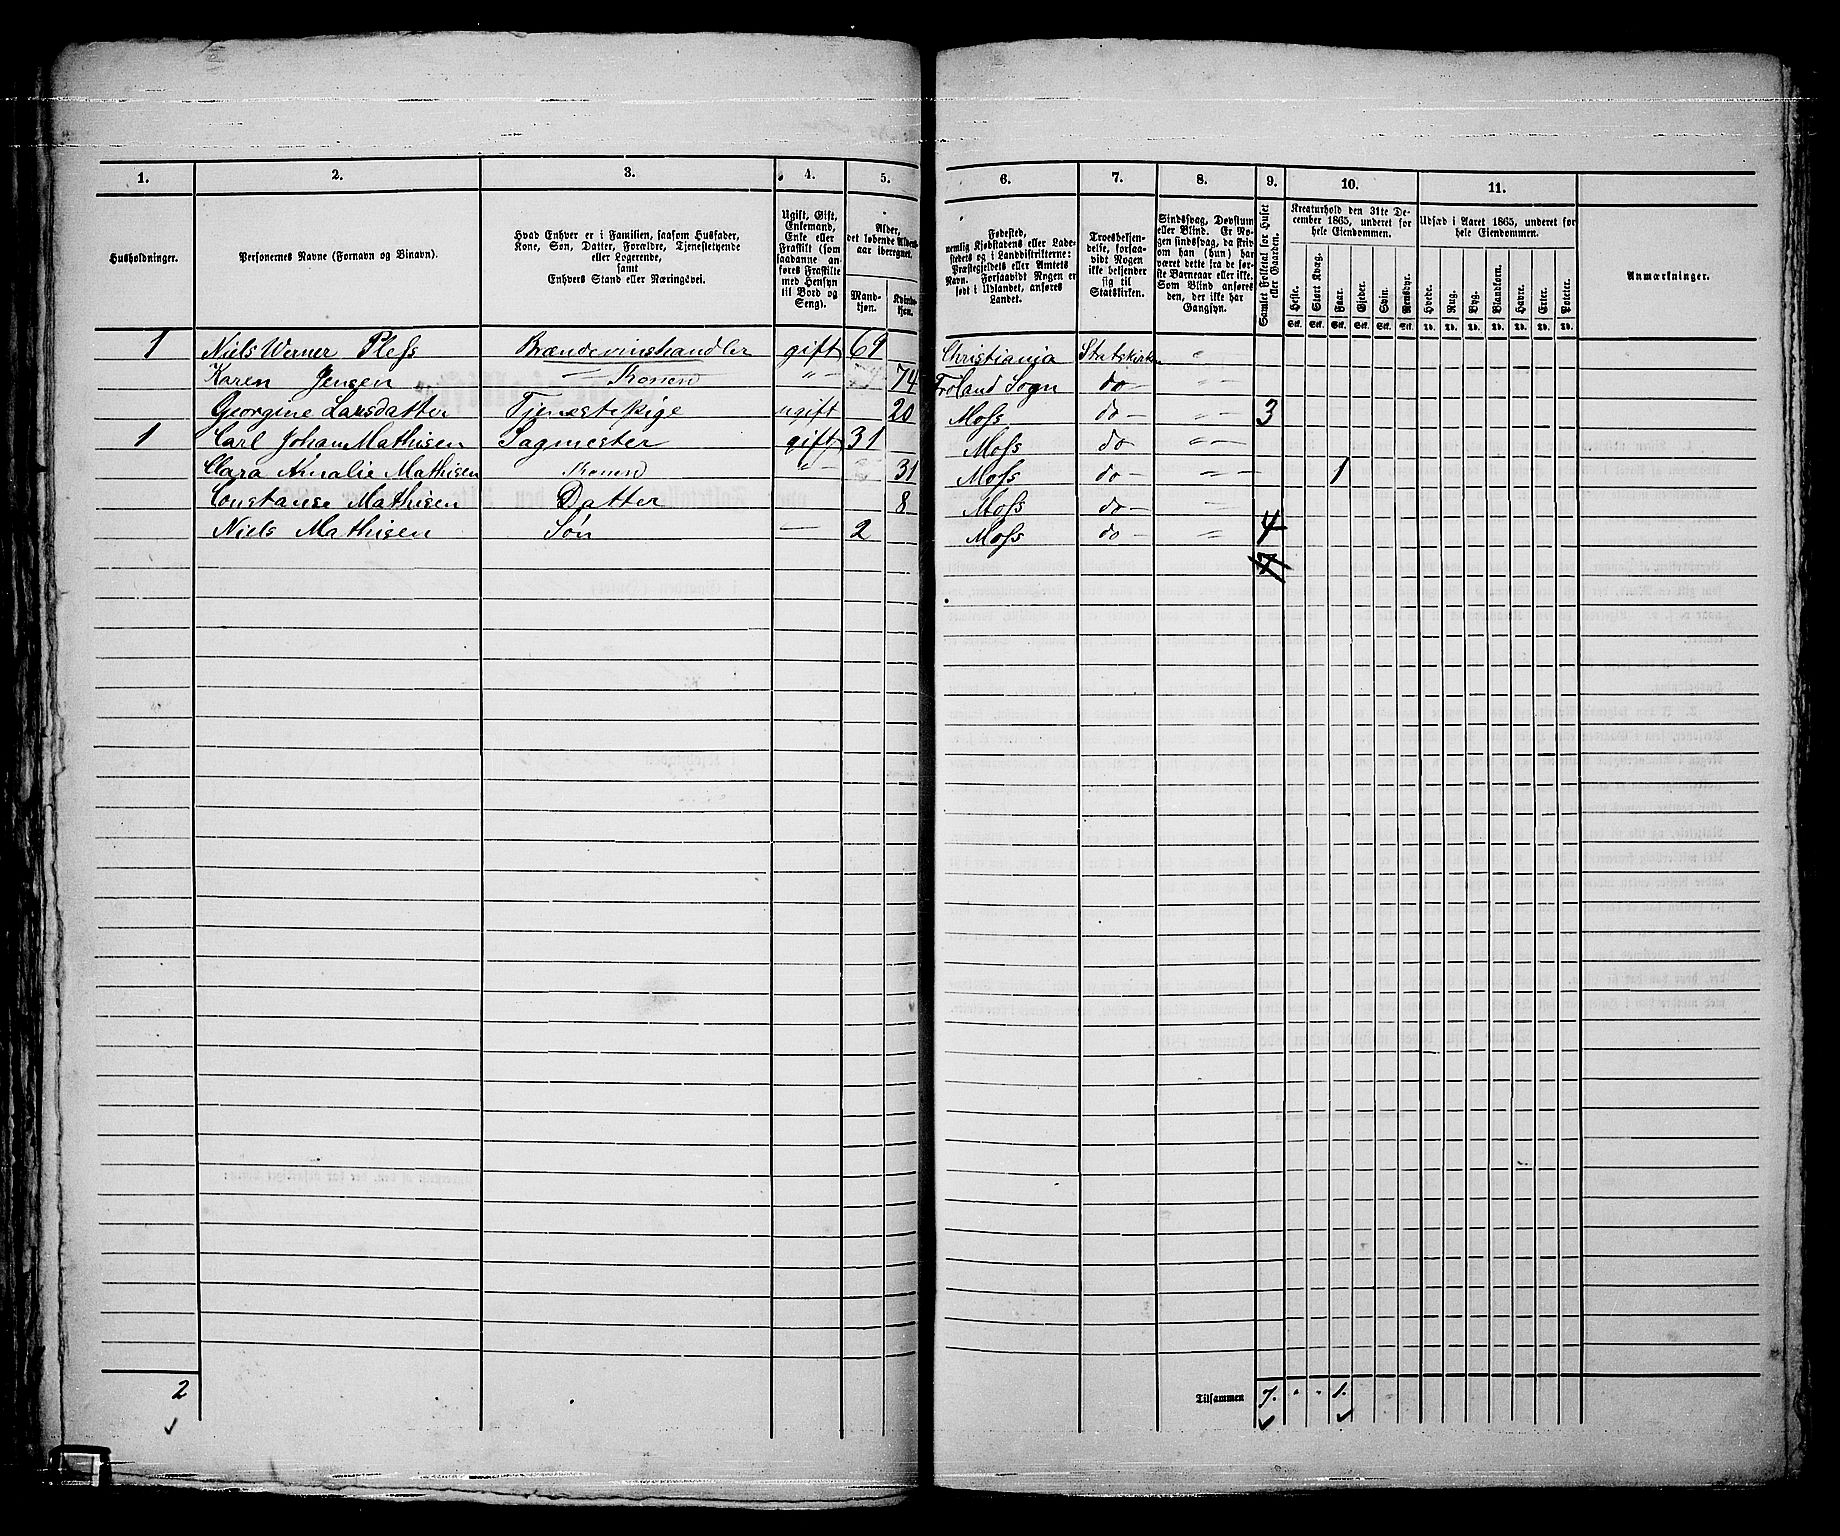 1. 2. 3. 4. 5. 6. 7. 8. 9. 10. 11.
Husholdninger.
Personernes Navne (Fornavn og Binavn).
Hvad Enhver er i Familien, saasom Husfader,
Kone, Søn, Datter, Forældre, Tjenestetyende
eller Logerende,
samt
Enhvers Stand eller Næringsvei.
Ugift, Gift,
Enkemand,
Enke eller
Fraskilt (som
saadanne an-
føres Fraskilte
med Hensyn
til Bord og
Seng).
Alder,
det løbende Alders-
aar iberegnet.
Mand-
kjøn.
Kvinde-
kjøn.
Fødested,
nemlig Kjøbstadens eller Lade-
stedets og i Landdistrikterne:
Præstegjeldets eller Amtets
Navn. Forsaavidt Nogen er
født i Udlandet, anføres
Landet.
Troesbekjen-
delse, forsaa-
vidt Nogen
ikke bekjender
sig til
Statskirken.
Sindssvag, Døvstum
eller Blind. Er No-
gen sindssvag, da skriv
om han (hun) har
været dette fra de før-
ste Barneaar eller ikke.
Som Blind anføres
der, ikke har
Gangsyn.
Samlet Folketal for Huset
eller Gaarden.
Kreaturhold den 31te De-
cember 1865, underet for
hele Eiendommen.
Heste. Stort Kvæg. Faar. Gjeder. Svin. Rensdyr.
Stk. Stk. Stk. Stk. Stk. Stk.
Udsæd i Aaret 1865, underet for
hele Eiendommen.
Hvede. Rug. Byg. Blandkorn. Havre. Erter. Poteter.
Td. Td. Td. Td. Td. Td. Td.
Anmærkninger.
1 Niels Werner Pless Brændevinshandler gift 69 Christiania Statskirken "
Karen Jensen " Konen " - 74 Froland Sogn do - "
Georgine Larsdatter Tjenestepige ugift 20 Moss do - " 3
1 Carl Johan Mathisen Sagmester gift 31 Moss do " -
Clara Amalie Mathisen Konen " - 31 Moss do - " - 1
Constanse Mathisen Datter 8 Moss do - "
Niels Mathisen Søn - 2 Moss do - " 4
7
2 Tilsammen 7. " " 1.